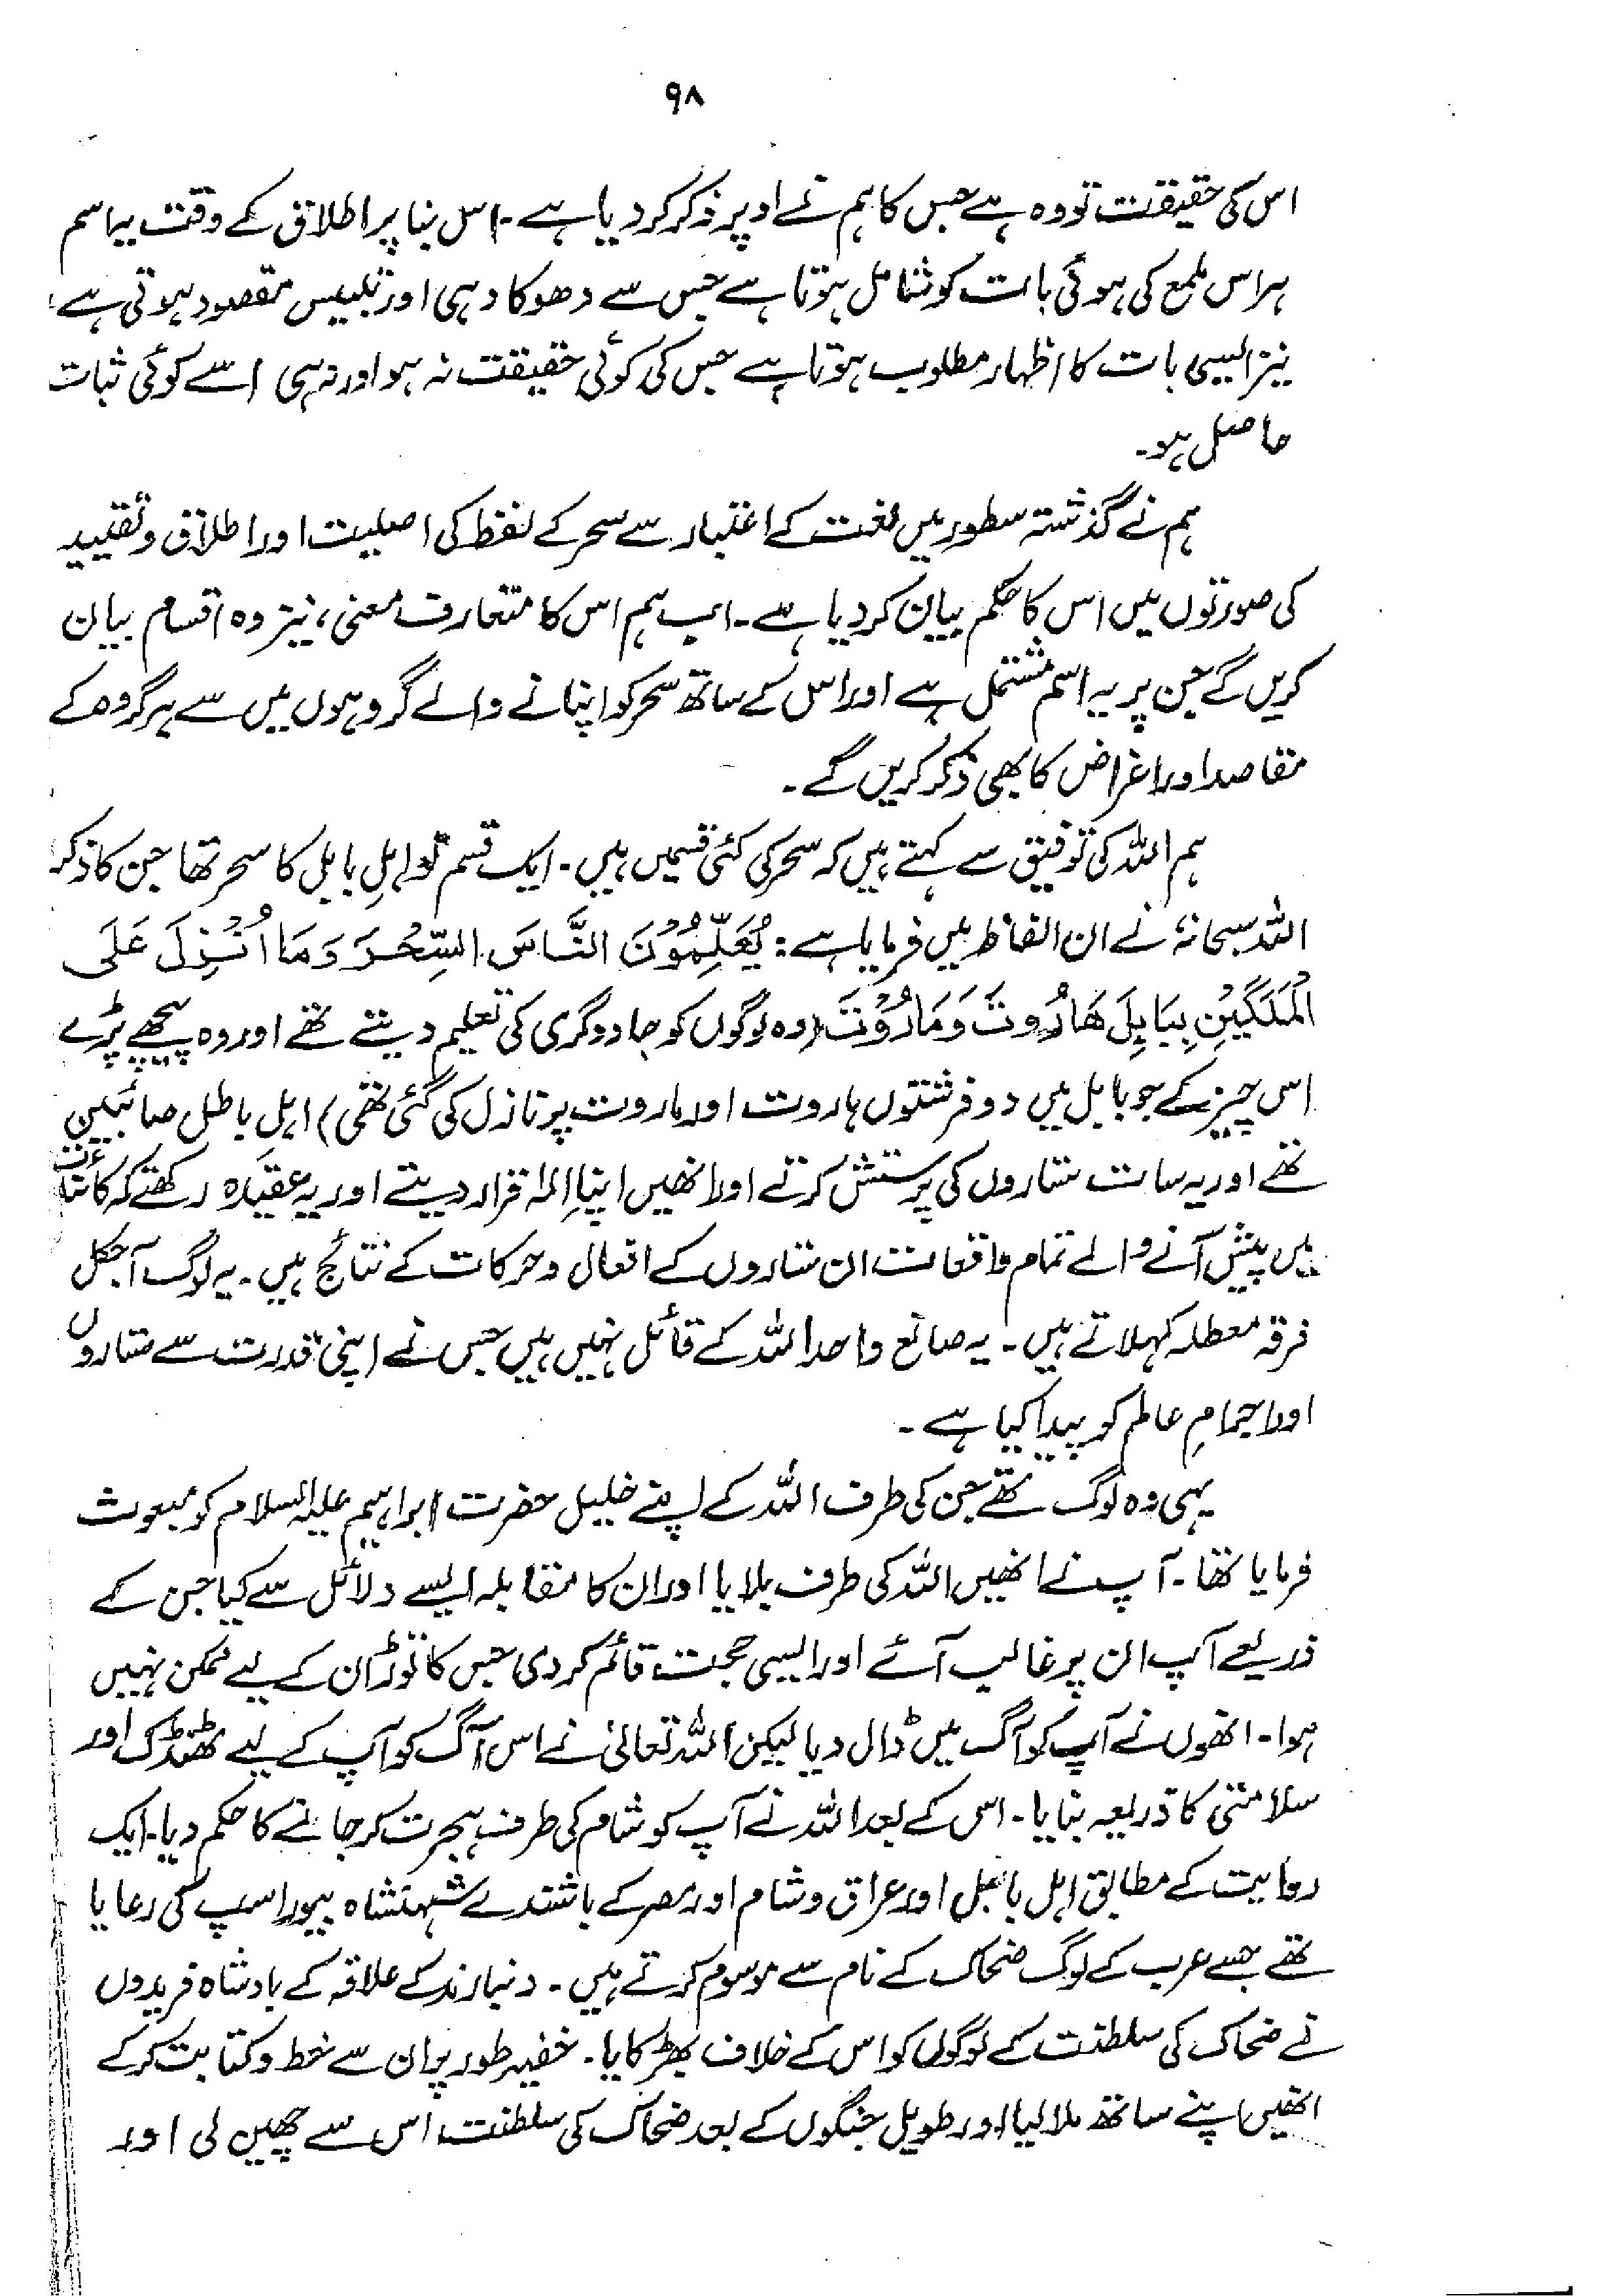 ۹۸
اس کی حقیقت تو وہ ہے جس کا ہم نے اوپر ذکر کر دیا ہے۔ اس بنا پر اطلاق کے وقت یہ اسم
ہر اس ملمع کی ہوئی بات کو شامل ہوتا ہے جس سے دھوکا دہی اور تلبیس مقصود ہوتی ہے،
نیز ایسی بات کا اظہار مطلوب ہوتا ہے جس کی کوئی حقیقت نہ ہو اور نہ ہی اسے کوئی ثبات
حاصل ہو۔
ہم نے گذشتہ سطور میں لغت کے اعتبار سے سحر کے لفظ کی اصلیت اور اطلاق و تقیید
کی صورتوں میں اس کا حکم بیان کر دیا ہے۔ اب ہم اس کا متعارف معنی، نیز وہ اقسام بیان
کریں گے جن پر یہ اسم مشتمل ہے اور اس کے ساتھ سحر کو اپنانے والے گروہوں میں سے ہر گروہ کے
مقاصد اور اغراض کا بھی ذکر کریں گے۔
ہم اللہ کی توفیق سے کہتے ہیں کہ سحر کی کئی قسمیں ہیں۔ ایک قسم تو اہلِ بابل کا سحر تھا جن کا ذکر
اللہ سبحانہٗ نے ان الفاظ میں فرمایا ہے: یُعَلِّمُوْنَ النَّاسَ السِّحْرَ وَمَا اُنْزِلَ عَلَی
الْمَلَکَیْنِ بِبَابِلَ ھَارُوتَ وَمَارُوْتَ (وہ لوگوں کو جادوگری کی تعلیم دیتے تھے اور وہ پیچھے پڑے
اس چیز کے جو بابل میں دو فرشتوں ہاروت اور ماروت پر نازل کی گئی تھی) اہل باطل صائبین
تھے اور یہ سات ستاروں کی پرستش کرتے اور انھیں اپنا اِلٰہ قرار دیتے اور یہ عقیدہ رکھتے کہ کائنات
میں پیش آنے والے تمام واقعات ان ستاروں کے افعال و حرکات کے نتائج ہیں۔ یہ لوگ آجکل
فرقہ معطلہ کہلاتے ہیں۔ یہ صانع واحد اللہ کے قائل نہیں ہیں جس نے اپنی قدرت سے ستاروں
اور اجرامِ عالم کو پیدا کیا ہے۔
یہی وہ لوگ تھے جن کی طرف اللہ کے اپنے خلیل حضرت ابراہیم علیہ السلام کو مبعوث
فرمایا تھا۔ آپ نے انھیں اللہ کی طرف بلایا اور ان کا مقابلہ ایسے دلائل سے کیا جن کے
ذریعے آپ ان پر غالب آئے اور ایسی حجت قائم کر دی جس کا توڑ ان کے لیے ممکن نہیں
ہوا۔ انھوں نے آپ کو آگ میں ڈال دیا لیکن اللہ تعالیٰ نے اس آگ کو آپ کے لیے ٹھنڈک اور
سلامتی کا ذریعہ بنایا۔ اس کے بعد اللہ نے آپ کو شام کی طرف ہجرت کر جانے کا حکم دیا۔ ایک
روایت کے مطابق اہل بابل اور عراق و شام اور مصر کے باشندے شہنشاہ بیوراسپ کی رعایا
تھے جسے عرب کے لوگ ضحاک کے نام سے موسوم کرتے ہیں۔ دنباوند کے علاقہ کے بادشاہ فریدوں
نے ضحاک کی سلطنت کے لوگوں کو اس کے خلاف بھڑکایا۔ خفیہ طور پر ان سے خط و کتابت کر کے
انھیں اپنے ساتھ ملا لیا اور طویل جنگوں کے بعد ضحاک کی سلطنت اس سے چھین لی اور